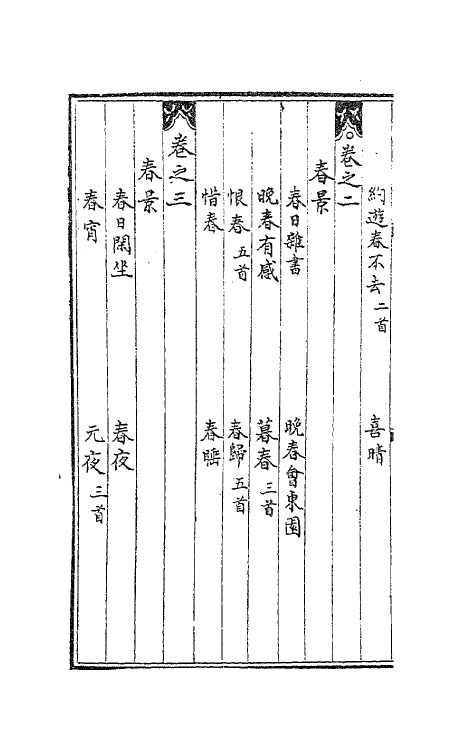 約遊春不去二首　喜晴
卷之二
春景
春日雜書　晚春會東園
晚春有感　暮春三首
恨春五首　春歸五首
惜春　春睡
卷之三
春景
春日閑坐　春夜
春宵　元夜三首